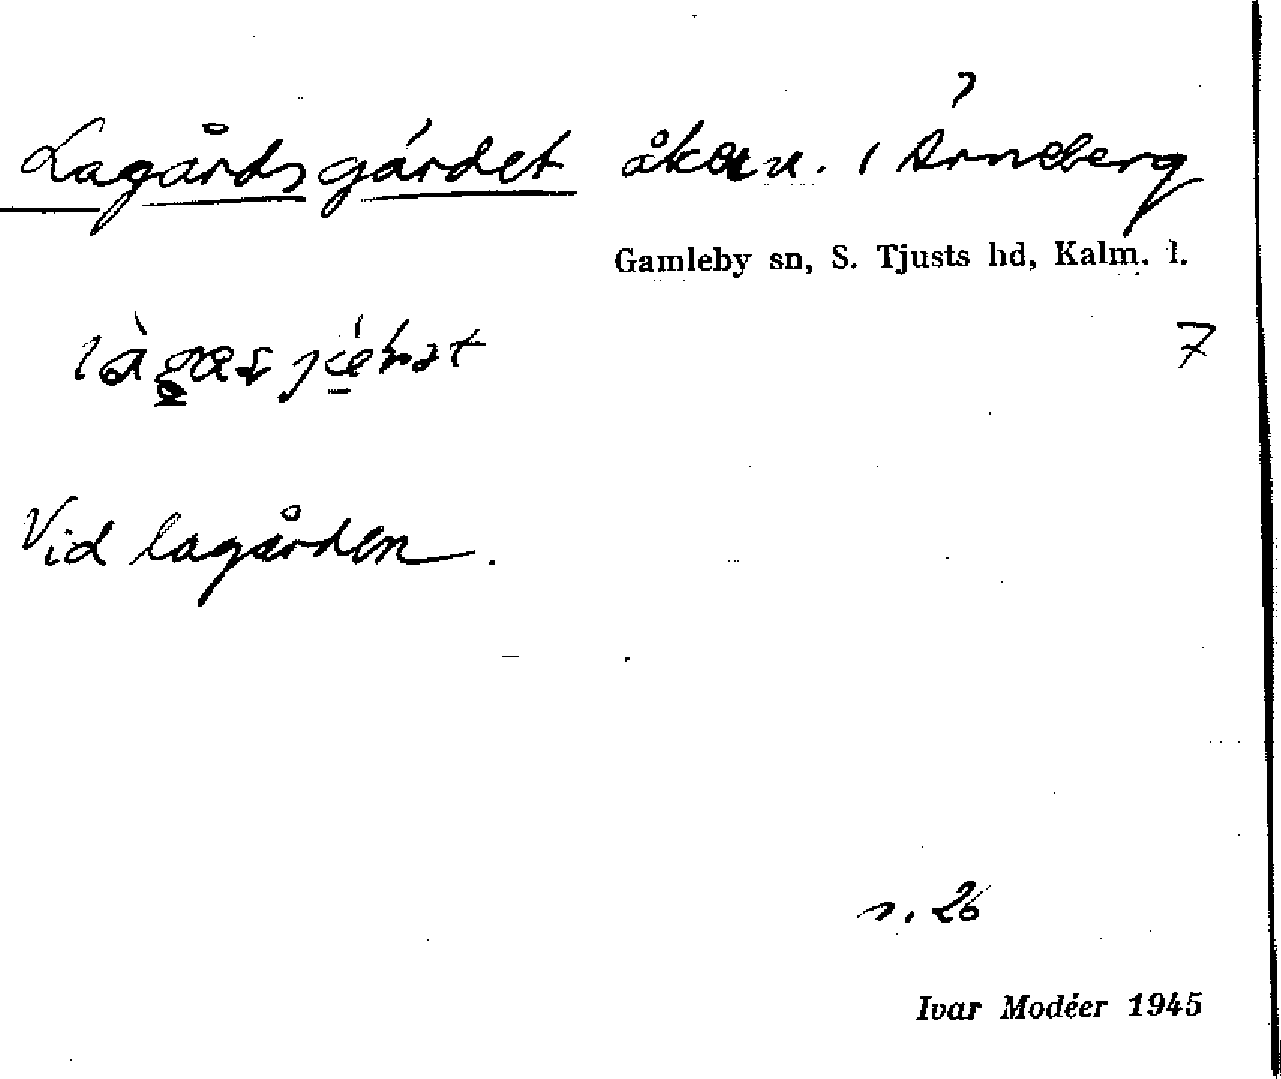 Lagårdsgärdet åkern. i Arneberg
Gamleby sn, S. Tjusts hd, Kalm. l.
7
Vid lagården.
s. 26
Ivar Modéer 1945